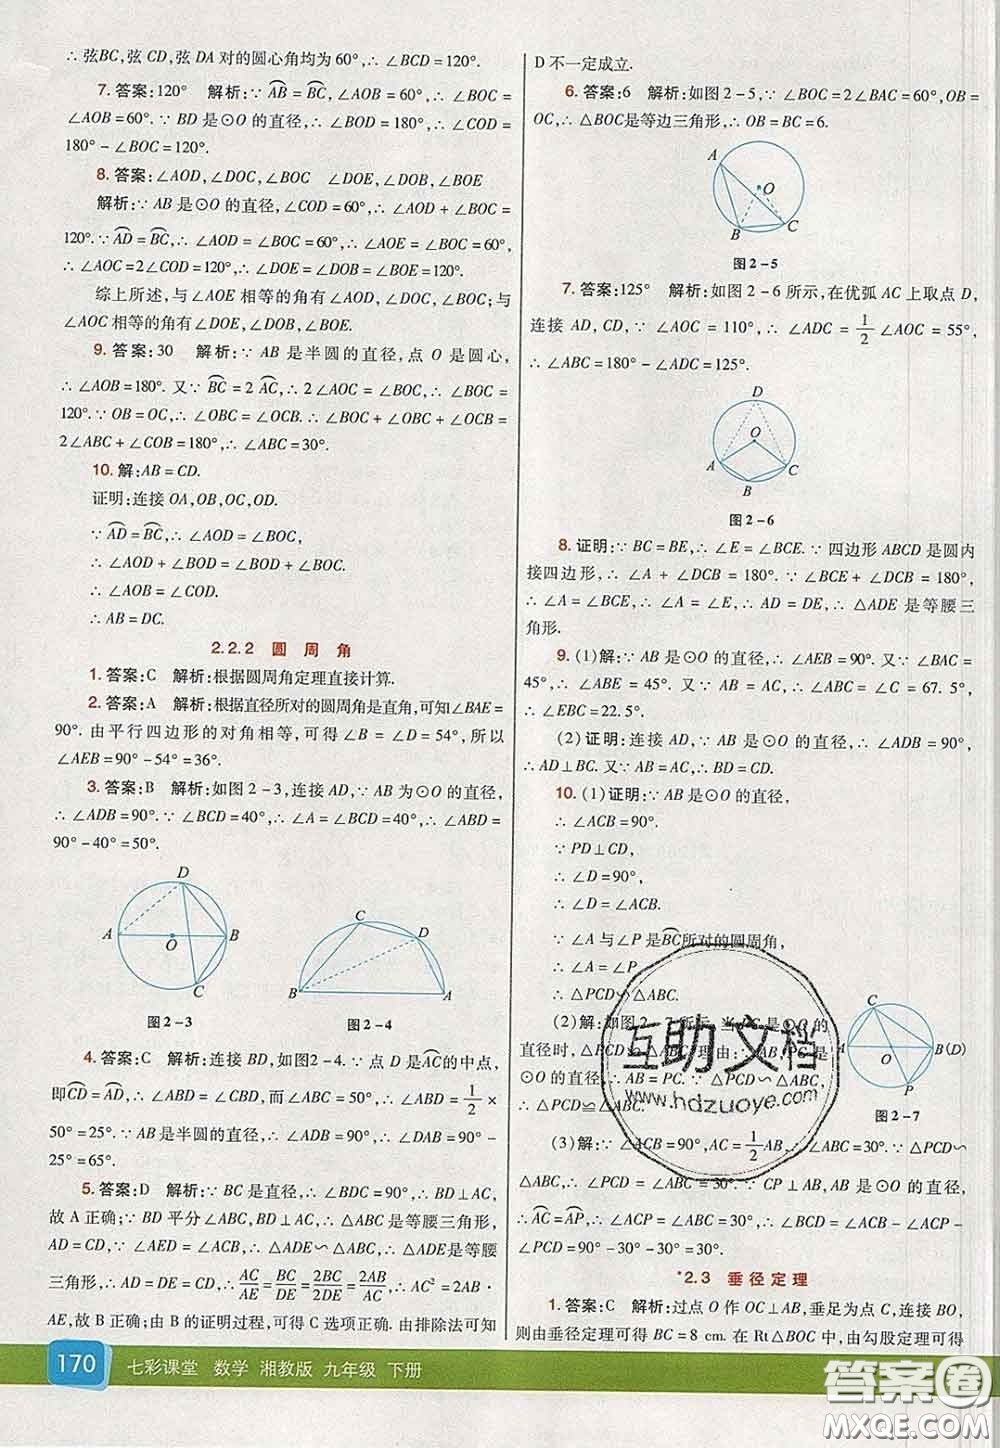 ∴ 弦BC,弦 CD,弦 DA 对的圆心角均为 60°,∴ ∠BCD=120°.
7. 答案:120°　解析:∵ AB=BC,∠AOB=60°,∴ ∠BOC=
∠AOB=60°. ∵ BD 是⊙O 的直径,∴ ∠BOD=180°,∴ ∠COD=
180°-∠BOC=120°.
8. 答案:∠AOD,∠DOC,∠BOC　∠DOE,∠DOB,∠BOE
解析:∵ AB 是⊙O 的直径,∠COD=60°,∴ ∠AOD+∠BOC=
120°. ∵ AD=BC,∴ ∠AOD=∠BOC=60°. ∵ ∠AOE=60°,
∴ ∠AOC=2∠COD=120°,∴ ∠DOB=∠DOE=∠BOE=120°.
综上所述,与∠AOE 相等的角有∠AOD,∠DOC,∠BOC;与
∠AOC 相等的角有∠DOE,∠DOB,∠BOE.
9. 答案:30　解析:∵ AB 是半圆的直径,点 O 是圆心,
∴ ∠AOB=180°. 又∵ BC=2 AC,∴ 2∠AOC=∠BOC,∴ ∠BOC=
120°. ∵ OB=OC,∴ ∠OBC=∠OCB. ∵ ∠BOC+∠OBC+∠OCB=
2∠ABC+∠COB=180°,∴ ∠ABC=30°.
10. 解:AB=CD.
证明:连接 OA,OB,OC,OD.
∵ AD=BC,∴ ∠AOD=∠BOC,
∵ ∠BOD=∠BOD,∴ ∠AOB=∠DOC.
∴ ∠AOB=∠COD.
∴ AB=DC.
2.2.2 圆 周 角
1. 答案:C　解析:根据圆周角定理直接计算.
2. 答案:A　解析:根据直径所对的圆周角是直角,可知∠BAE=
90°. 由平行四边形的对角相等,可得∠B=∠D=54°,所以
∠AEB=90°-54°=36°.
3. 答案:B　解析:如图 2-3,连接 AD,∵ AB 为⊙O 的直径,
∴ ∠ADB=90°. ∵ ∠B=∠BCD,∴ ∠A=∠BCD=40°,∴ ∠ABD=
90°-40°=50°.
D
A
O
B
C
图 2-3
C
D
B
A
图 2-4
4. 答案:C　解析:连接 BD,如图2-4. ∵ 点 D 是AC的中点,
即CD=AD,∴ ∠ABD=∠CBD,而∠ABC=50°,∴ ∠ABD=1/2×
50°=25°. ∵ AB 是半圆的直径,∴ ∠ADB=90°,∴ ∠DAB=90°-
25°=65°.
5. 答案:D　解析:∵ BC 是直径,∴ ∠BDC=90°,∴ BD⊥AC,
故 A 正确;∵ BD 平分∠ABC,BD⊥AC,∴ △ABC 是等腰三角形,
AD=CD,∵ ∠AED=∠ACB,∴ △ADE∽△ABC,∴ △ADE是等腰
三角形,∴ AD=DE=CD,∴ AC/DE=BC/DE=2BC/2DE=2AB/AC,∴ AC²=2AB·
AE,故 B 正确;由 B 的证明过程,可得 C 选项正确. 由排除法可知
D 不一定成立.
6. 答案:6　解析:如图 2-5,∵ ∠BOC=2∠BAC=60°,OB=
OC,∴ △BOC是等边三角形,∴ OB=BC=6.
A
O
B
C
图 2-5
7. 答案:125°　解析:如图 2-6 所示,在优弧 AC 上取点 D,
连接 AD,CD,∵ ∠AOC=110°,∴ ∠ADC=1/2∠AOC=55°,
∴ ∠ABC=180°-∠ADC=125°.
D
O
A
C
B
图 2-6
8. 证明:∵ BC=BE,∴ ∠E=∠BCE. ∵ 四边形 ABCD 是圆内
接四边形,∴ ∠A+∠DCB=180°. ∵ ∠BCE+∠DCB=180°,
∴ ∠A=∠BCE,∴ ∠A=∠E,∴ AD=DE,∴ △ADE 是等腰三
角形.
9. (1)解:∵ AB 是⊙O 的直径,∴ ∠AEB=90°. 又∵ ∠BAC=
45°,∴ ∠ABE=45°. 又∵ AB=AC,∴ ∠ABC=∠C=67.5°,
∴ ∠EBC=22.5°.
(2)证明:连接 AD,∵ AB 是⊙O 的直径,∴ ∠ADB=90°,
∴ AD⊥BC. 又∵ AB=AC,∴ BD=CD.
10. (1)证明:∵ AB 是⊙O 的直径,
∴ ∠ACB=90°.
∵ PD⊥CD,
∴ ∠D=90°.
∴ ∠D=∠ACB.
∵ ∠A 与∠P 是BC所对的圆周角,
∴ ∠A=∠P,
∴ △PCD∽△ABC.
(2)解:如图 2-7 所示,当 PC 是⊙O 的
直径时,△PCD≌△ABC. 理由:∵ AB,PC 是
⊙O 的直径,∴ AB=PC. ∵ △PCD∽△ABC,
∴ △PCD≌△ABC.
C
A
O
B(D)
P
图 2-7
(3)解:∵ ∠ACB=90°,AC=1/2AB,∴ ∠ABC=30°. ∵ △PCD∽
△ABC,∴ ∠PCD=∠ABC=30°. ∵ CP⊥AB,AB 是⊙O 的直径,
∴ AC=AP,∴ ∠ACP=∠ABC=30°,∴ ∠BCD=∠ACB-∠ACP-
∠PCD=90°-30°-30°=30°.
*2.3 垂径定理
1. 答案:C　解析:过点 O 作 OC⊥AB,垂足为点 C,连接 BO,
则由垂径定理可得 BC=8 cm. 在 Rt△BOC 中,由勾股定理可得
170 七彩课堂 数学 湘教版 九年级 下册
互助文档
www.hdzuoye.com
答案圈
MXQE.COM